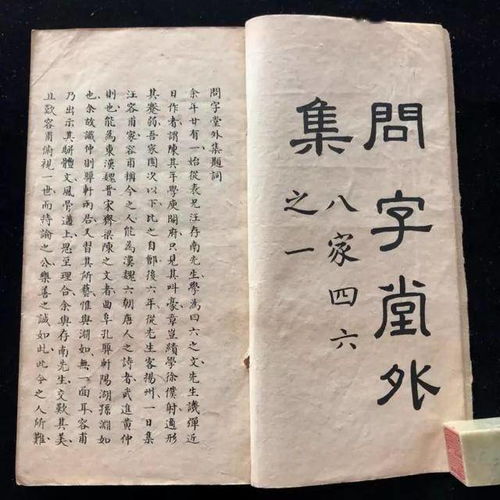 問字堂外
集
八家四六
之一
問字堂外集題詞
余年廿有一始從表兄汪存南先生學為四六之文先生譏彈近
日作者謂陳其年學庾開府只見其叫豪章豈績學徐僕射適形
其弱吾家園次以下比之自鄶後六年從先生客揚州一日集
汪容甫家容甫稱今之人能為漢魏六朝唐人之詩者武進黃仲
則也能為東漢魏晉宋齊梁陳之文者曲阜孔顨軒陽湖孫淵如
也余故識仲則顨軒而君又習其所藝惟與淵如無一面耳容甫
乃出示其駢體文風骨遒上思至理合余與存南先生交歎其美
且歎容甫俯視一世而持論之公樂善之誠如此此今之人所難